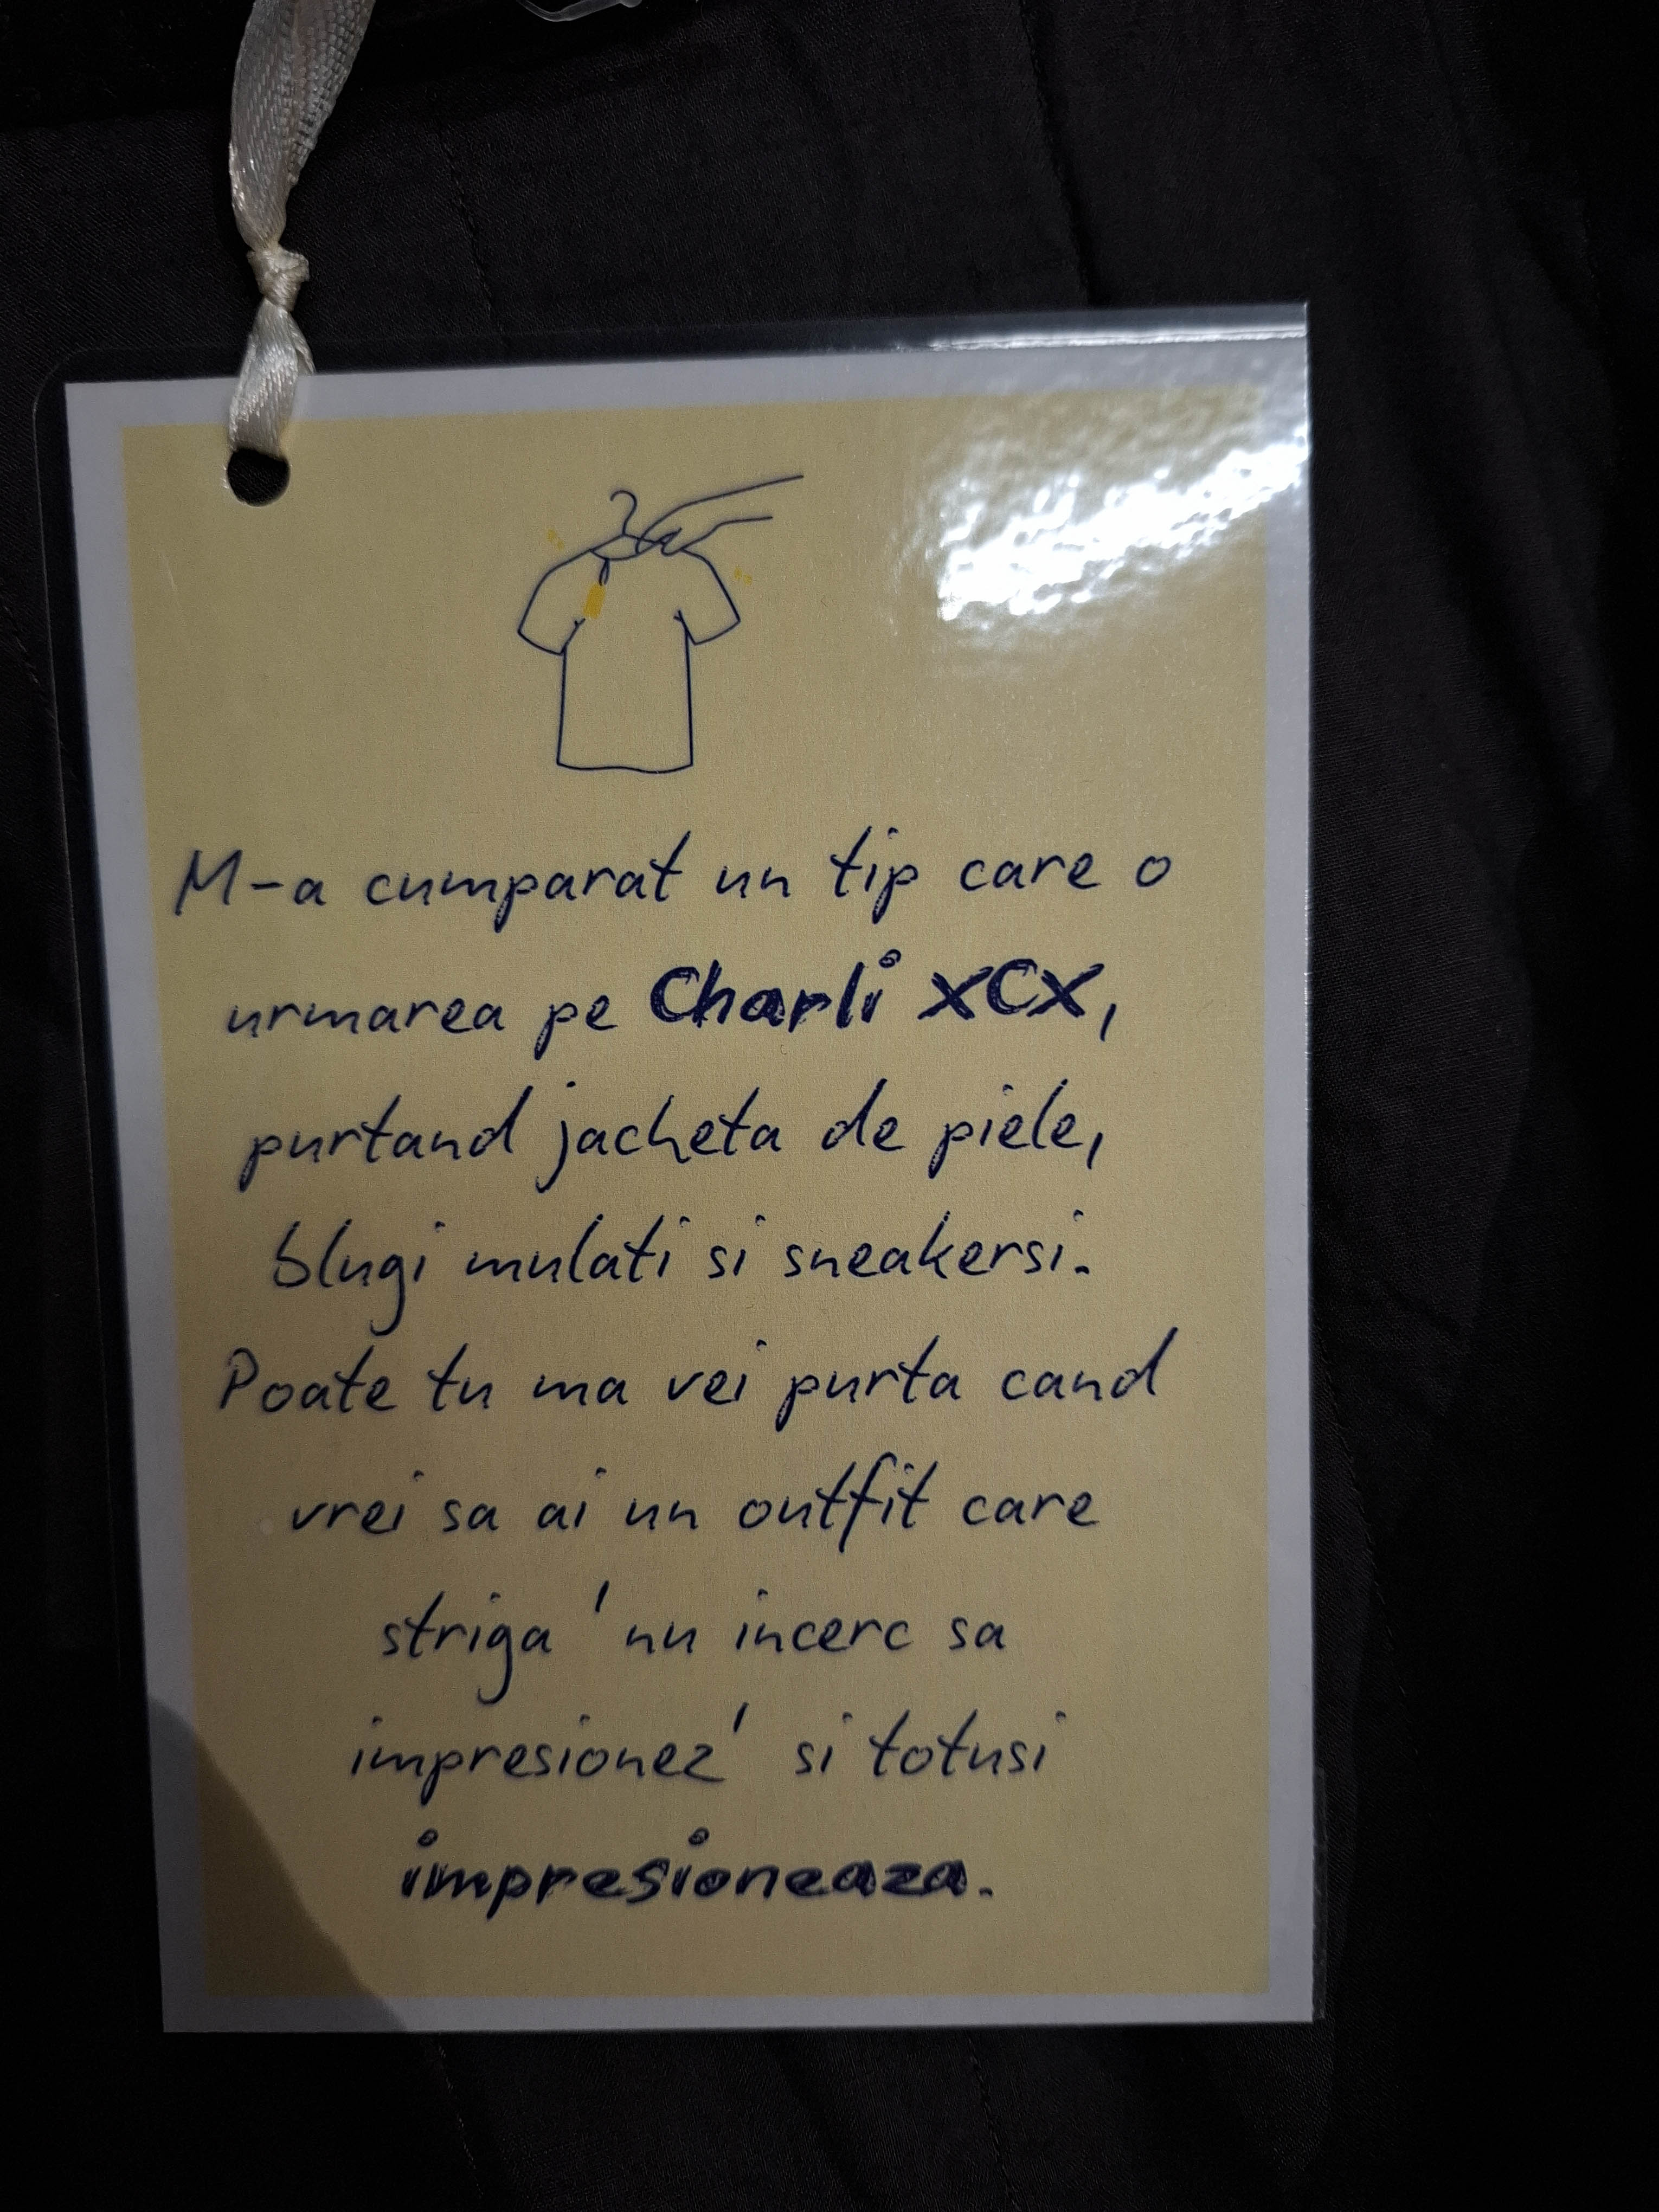 M-a cumparat un tip care o
urmarea pe Charli XCX,
purtand jacheta de piele,
blugi mulati si sneakersi.
Poate tu ma vei purta cand
vrei sa ai un outfit care
striga 'nu incerc sa
impresionez' si totusi
impresioneaza.